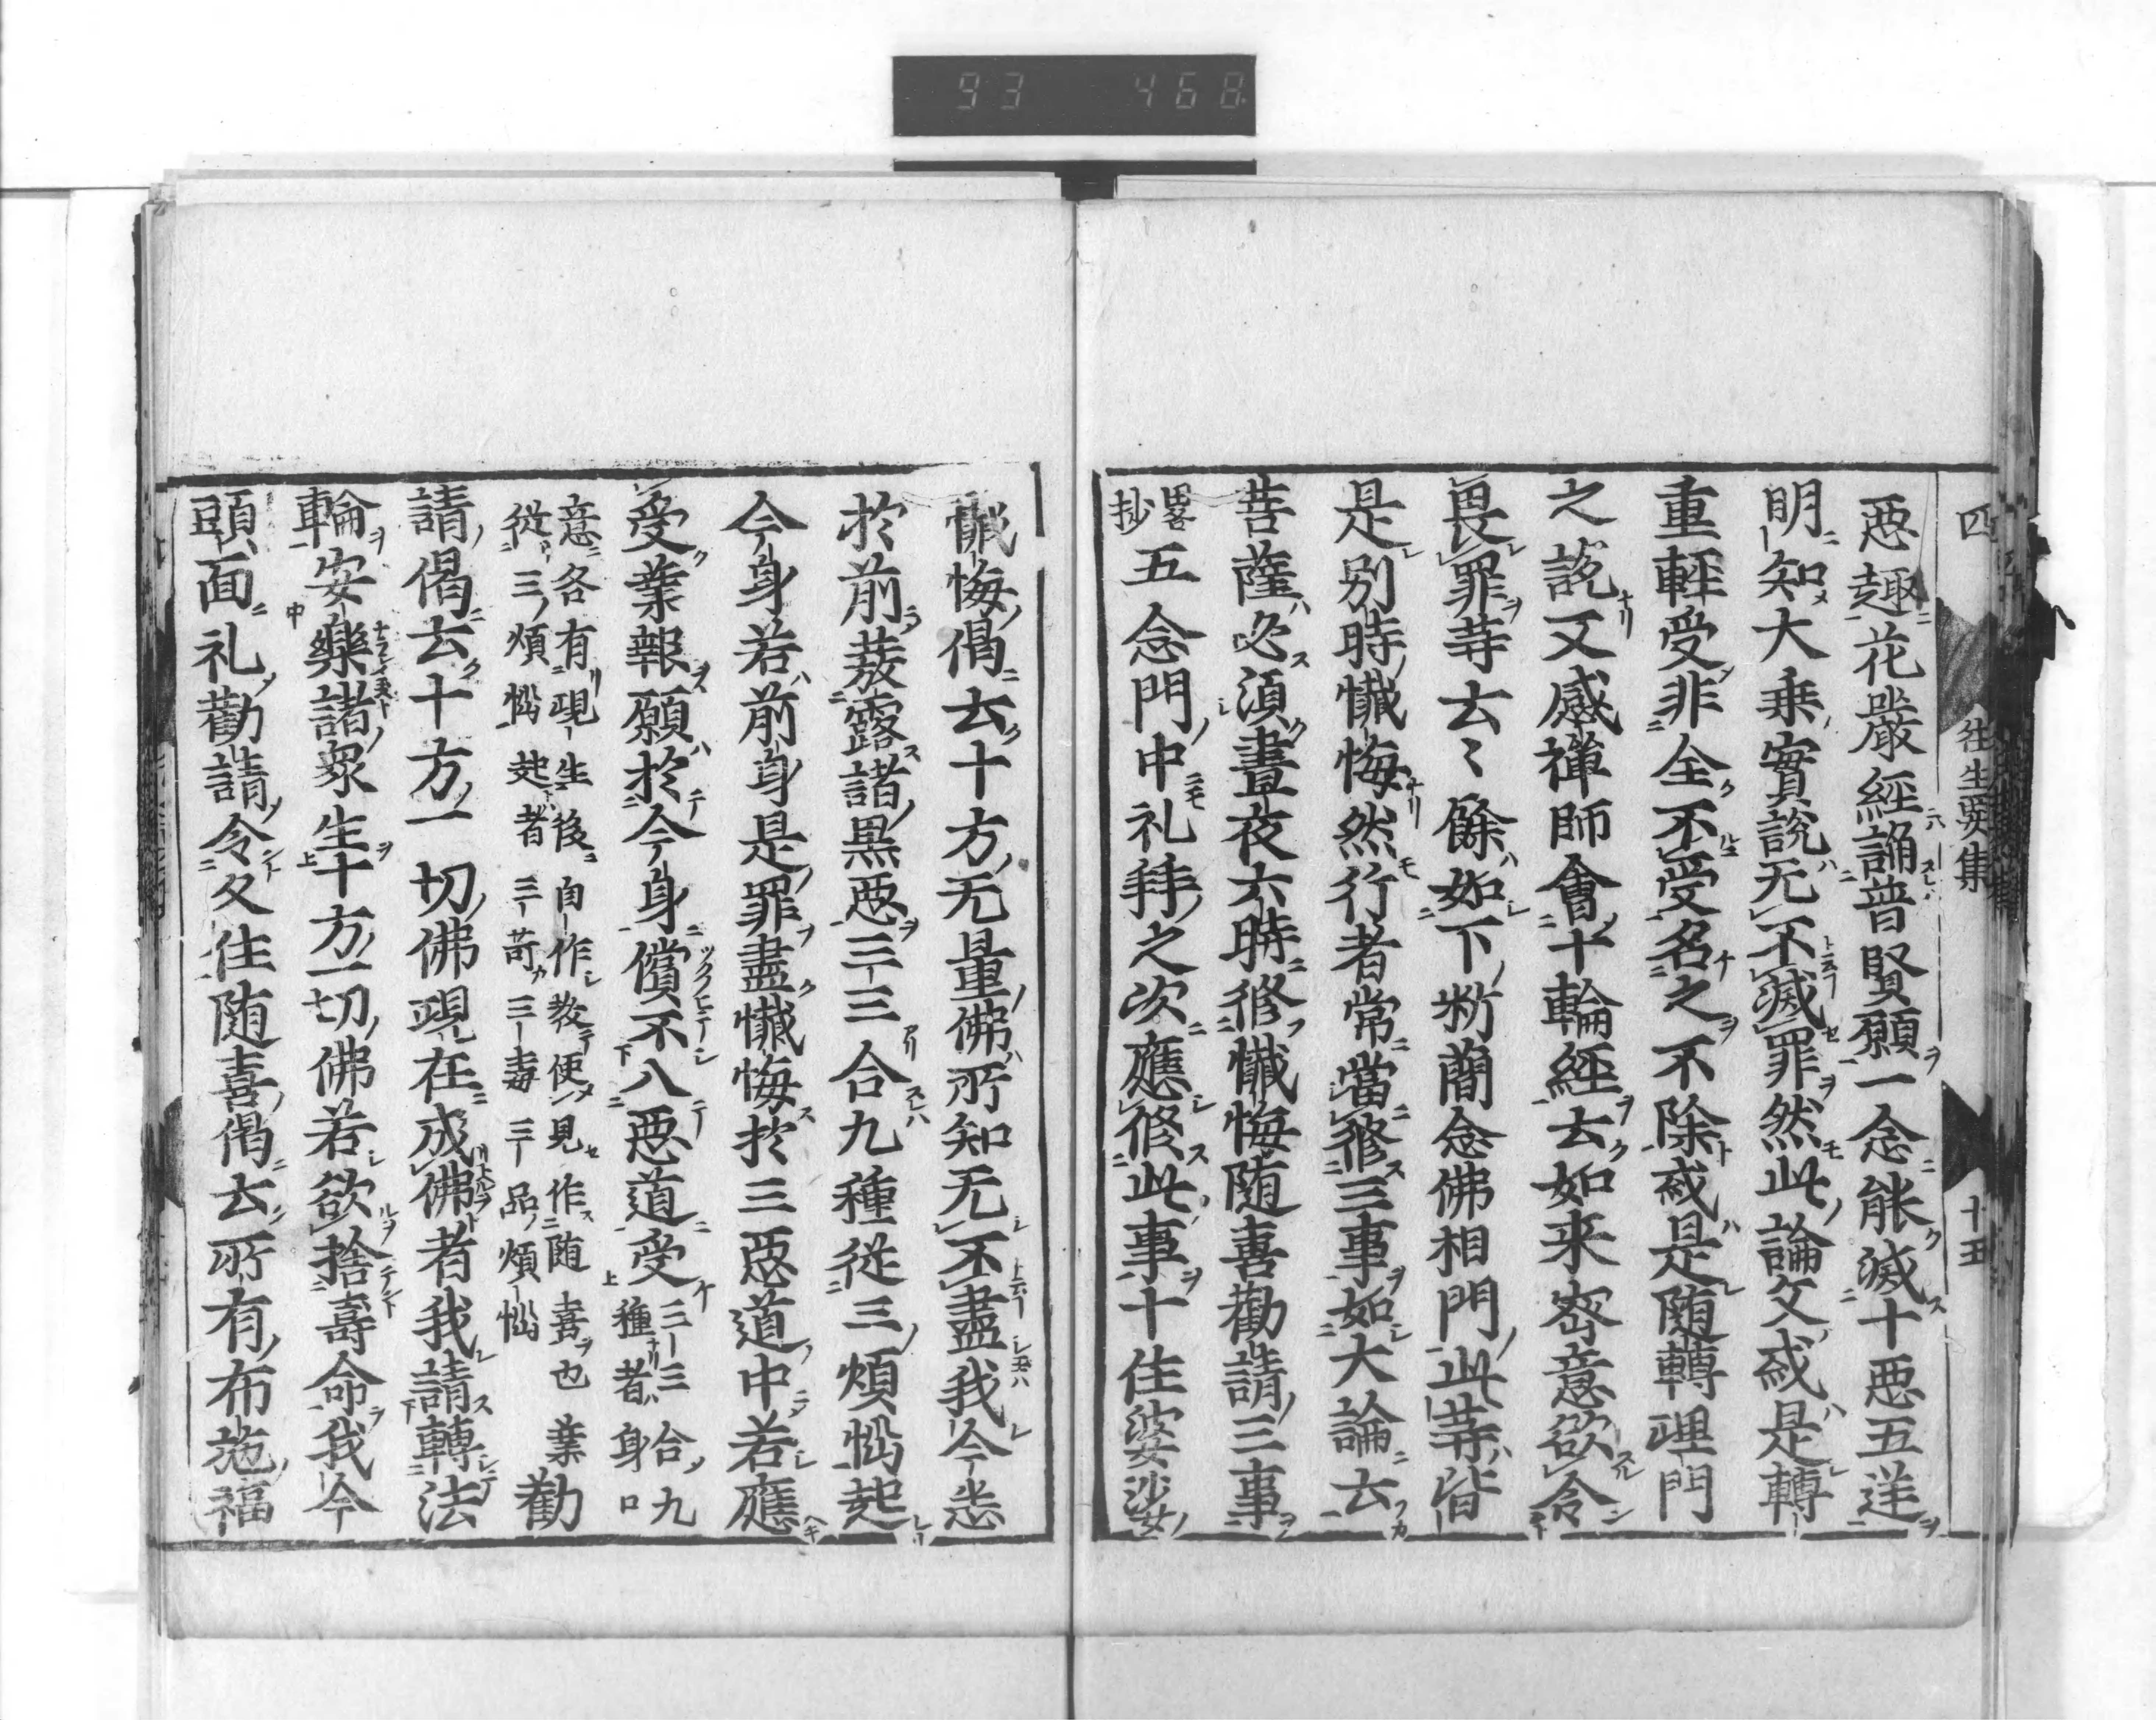 93 468
四
往生要集
十五
惡趣花嚴經誦普賢願一念能滅十惡五逆
明知大乗實説无不滅罪然此論文或是轉
重輕受非全不受名之不除或是随轉理門
之説又感禅師會十輪經云如来密意欲令
畏罪䓁云〻餘如下斯簡念佛相門此䓁皆
是別時懺悔然行者常當修三事如大論云
菩薩必須晝夜六時修懺悔随喜勸請三事
畧抄五念門中礼拜之次應修此事十住婆沙
懺悔偈云十方无量佛所知无不盡我今悉
於前發露諸黒惡三三合九種從三煩惱起
今身若前身是罪盡懺悔於三惡道中若應
受業報願於今身償不入惡道受三三合九種者身口
意各有現生後自作教便見作随喜也業
從三煩惱起者三苛三毒三品煩惱
勸
請偈云十方一切佛現在成佛者我請轉法
輪安樂諸衆生十方一切佛若欲捨壽命我今
頭面礼勸請令久住随喜偈云所有布施福